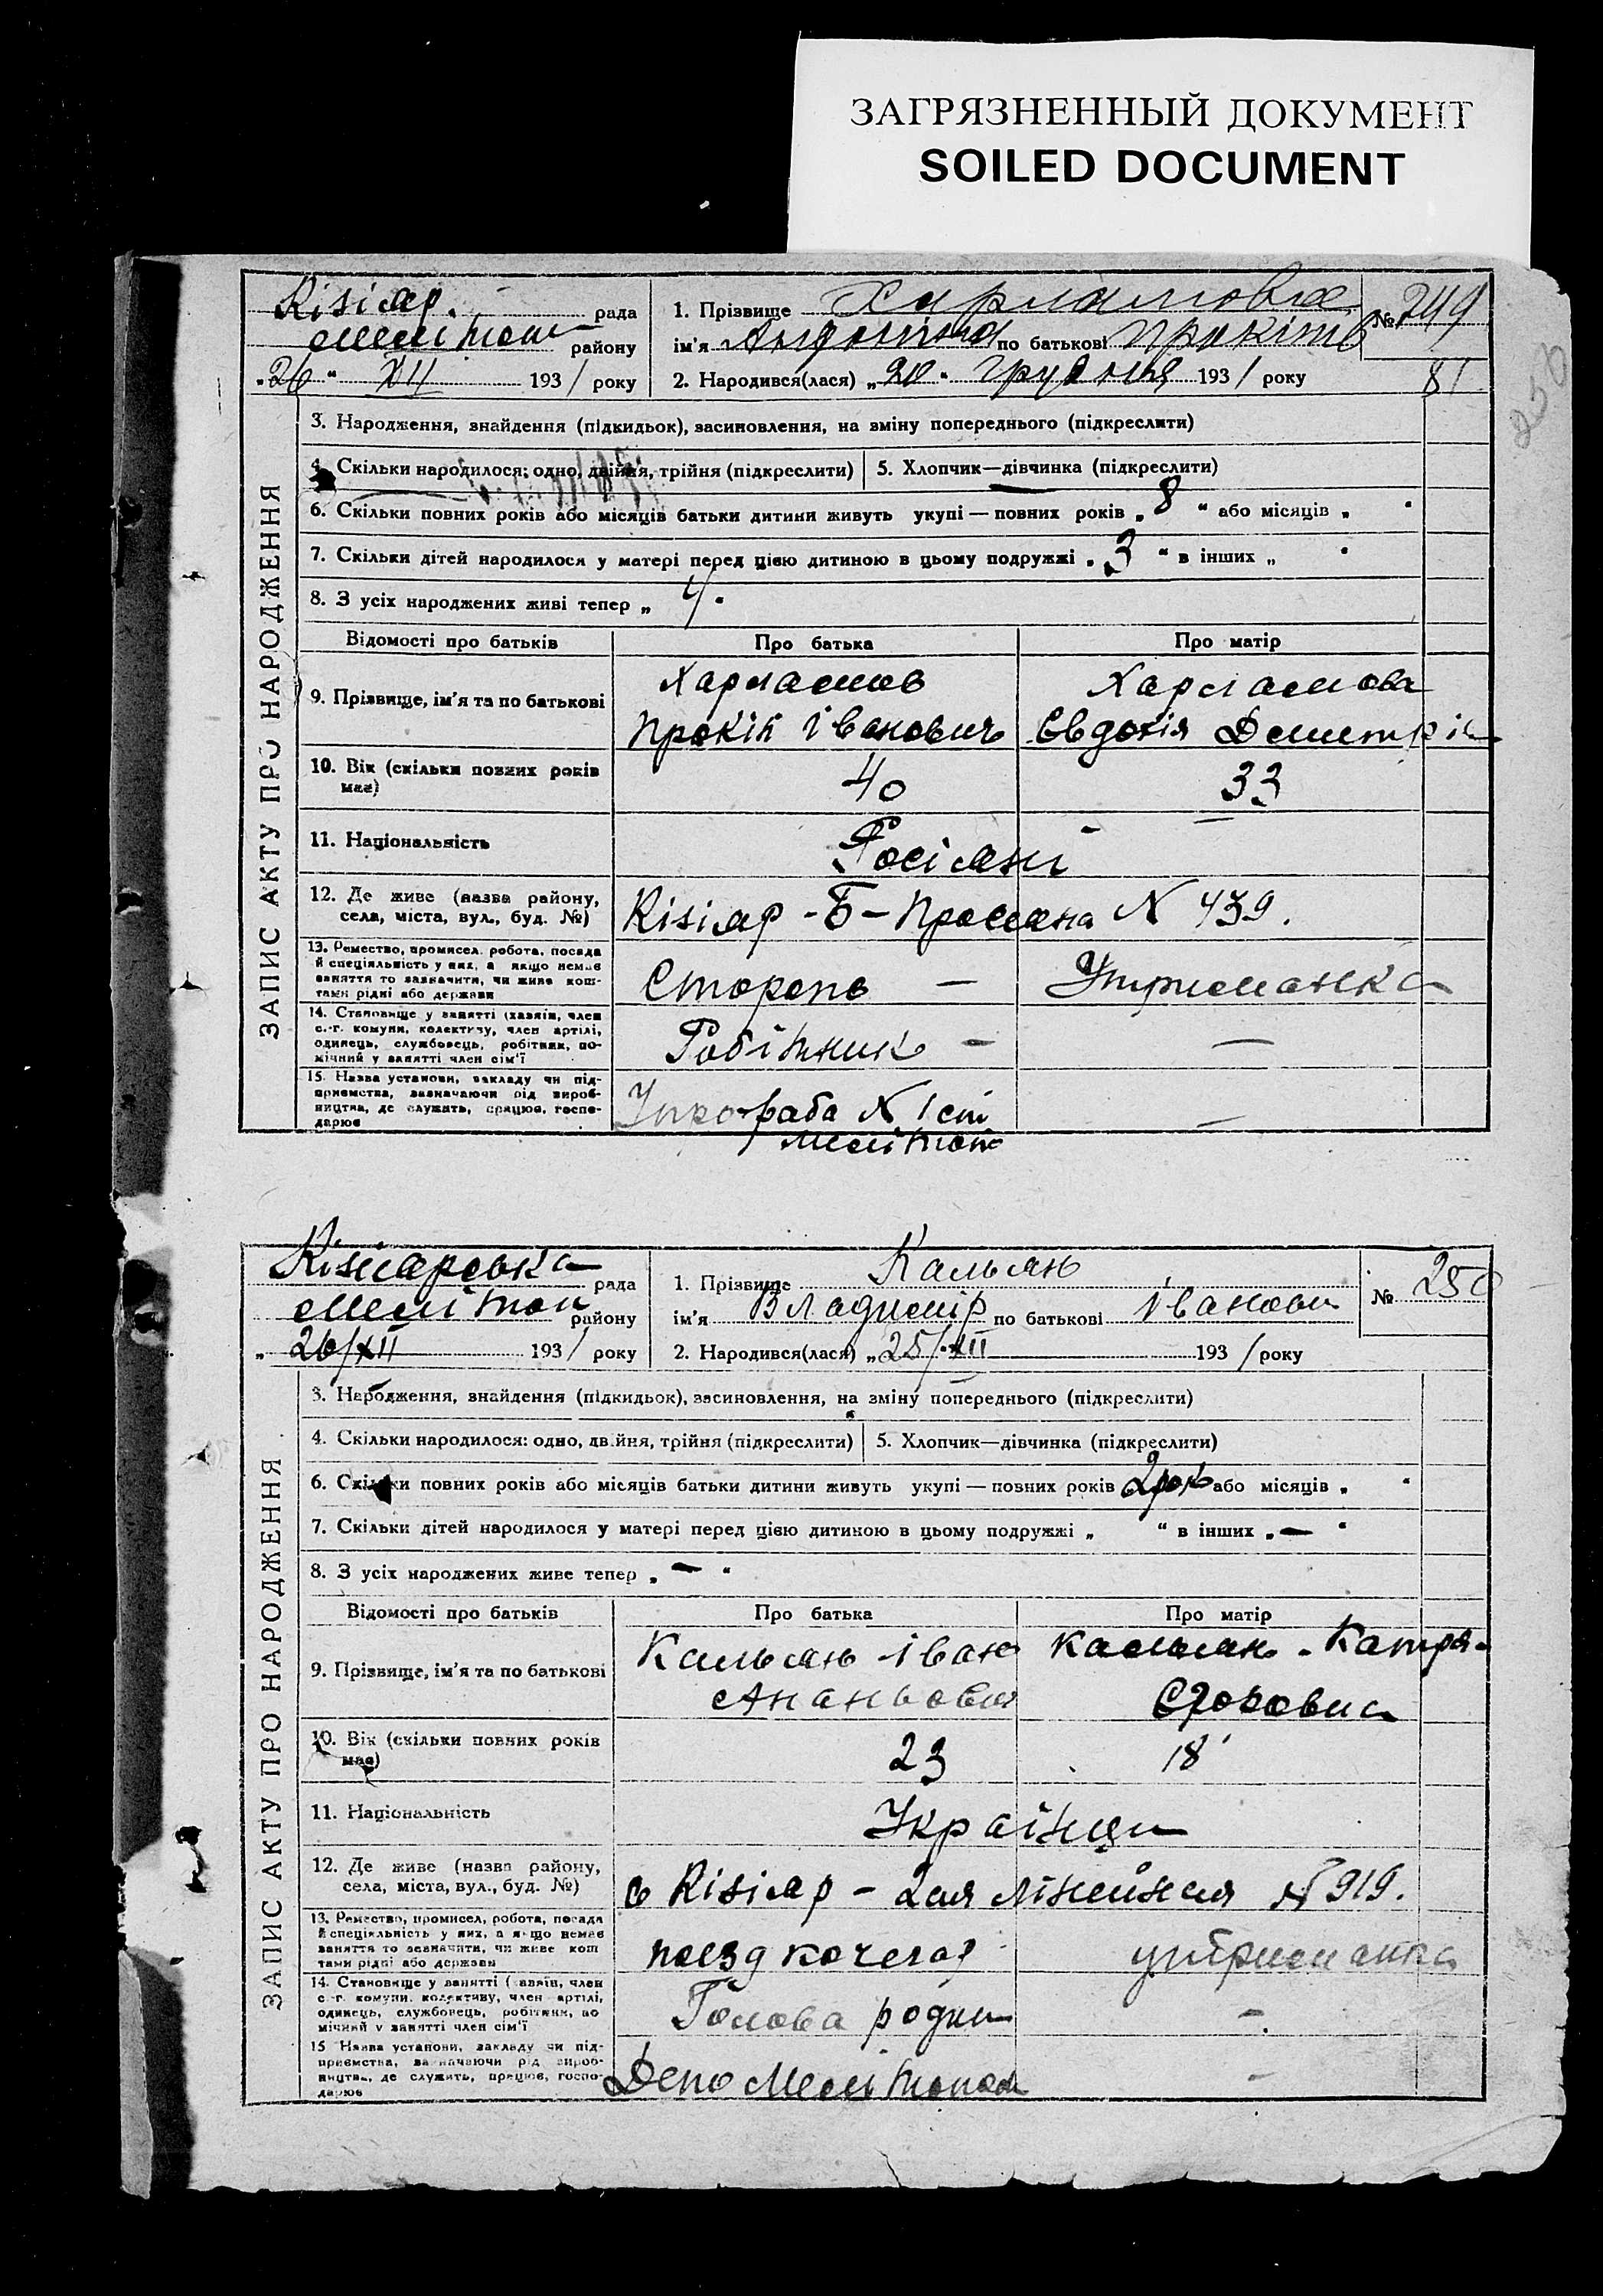 ЗАГРЯЗНЕННЫЙ ДОКУМЕНТ
SOILED DOCUMENT
250
Кізіяр. рада
Мелітоп району
„26“ XII 1931 року
1. Прізвище Харламова
ім'я по батькові Прокіпів
2. Народився(лася) „20“ грудня 1931 року
№ 249
81
ЗАПИС АКТУ ПРО НАРОДЖЕННЯ
3. Народження, знайдення (підкидьок), засиновлення, на зміну попереднього (підкреслити)
4. Скільки народилося: одно, двійня, трійня (підкреслити) 5. Хлопчик—дівчинка (підкреслити)
6. Скільки повних років або місяців батьки дитини живуть укупі — повних років „8“ або місяців „ “
7. Скільки дітей народилося у матері перед цією дитиною в цьому подружжі „3“ в інших „ “
8. З усіх народжених живі тепер „4“
Відомості про батьків Про батька Про матір
9. Прізвище, ім'я та по батькові Харламов Харламова
Прокіп Іванович Євдокія Дмитрів
10. Вік (скільки повних років має) 40 33
11. Національність Росіяни
12. Де живе (назва району, села, міста, вул., буд. №) Кізіяр - Б - Промана N 439.
13. Ремество, промисел, робота, посада й спеціяльність у них, а якщо немає заняття то зазначити, чи живе коштами рідні або держави Сторож — Утриманка
14. Становище у занятті (хазяїн, член с.-г. комуни, колективу, член артілі, одинець, службовець, робітник, помічний у занятті член сім'ї Робітник — —
15. Назва установи, закладу чи підприємства, зазначаючи рід виробництва, де служить, працює, господарює N 1 ст —
Мелітоп
Кізіярська рада
Мелітоп району
„26/XII 1931 року
1. Прізвище Кальян
ім'я Владимір по батькові Іванови
2. Народився(лася) „25/XII 1931 року
№ 250
ЗАПИС АКТУ ПРО НАРОДЖЕННЯ
3. Народження, знайдення (підкидьок), засиновлення, на зміну попереднього (підкреслити)
4. Скільки народилося: одно, двійня, трійня (підкреслити) 5. Хлопчик—дівчинка (підкреслити)
6. Скільки повних років або місяців батьки дитини живуть укупі — повних років 2 рок або місяців „ “
7. Скільки дітей народилося у матері перед цією дитиною в цьому подружжі „ “ в інших „—“
8. З усіх народжених живе тепер „—“
Відомості про батьків Про батька Про матір
9. Прізвище, ім'я та по батькові Кальян Іван Кальян - Катря
Ананьович Єгоровна
10. Вік (скільки повних років має) 23 18
11. Національність Українци
12. Де живе (назва району, села, міста, вул., буд. №) с Кізіяр - 2ая Лінейная N 919.
13. Ремество, промисел, робота, посада й спеціяльність у них, а якщо немає заняття то зазначити, чи живе коштами рідні або держави поезд кочегар утриманка
14. Становище у занятті (хазяїн, член с.-г. комуни, колективу, член артілі, одинець, службовець, робітник, помічний у занятті член сім'ї Голова родин —
15 Назва установи, закладу чи підприємства, зазначаючи рід виробництва, де служить, працює, господарює Депо Мелітополь —